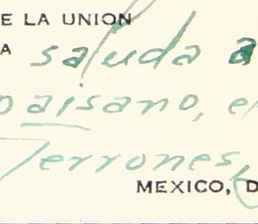 E LA UNION
A saluda a
paisano, e
Terrones
MEXICO, D